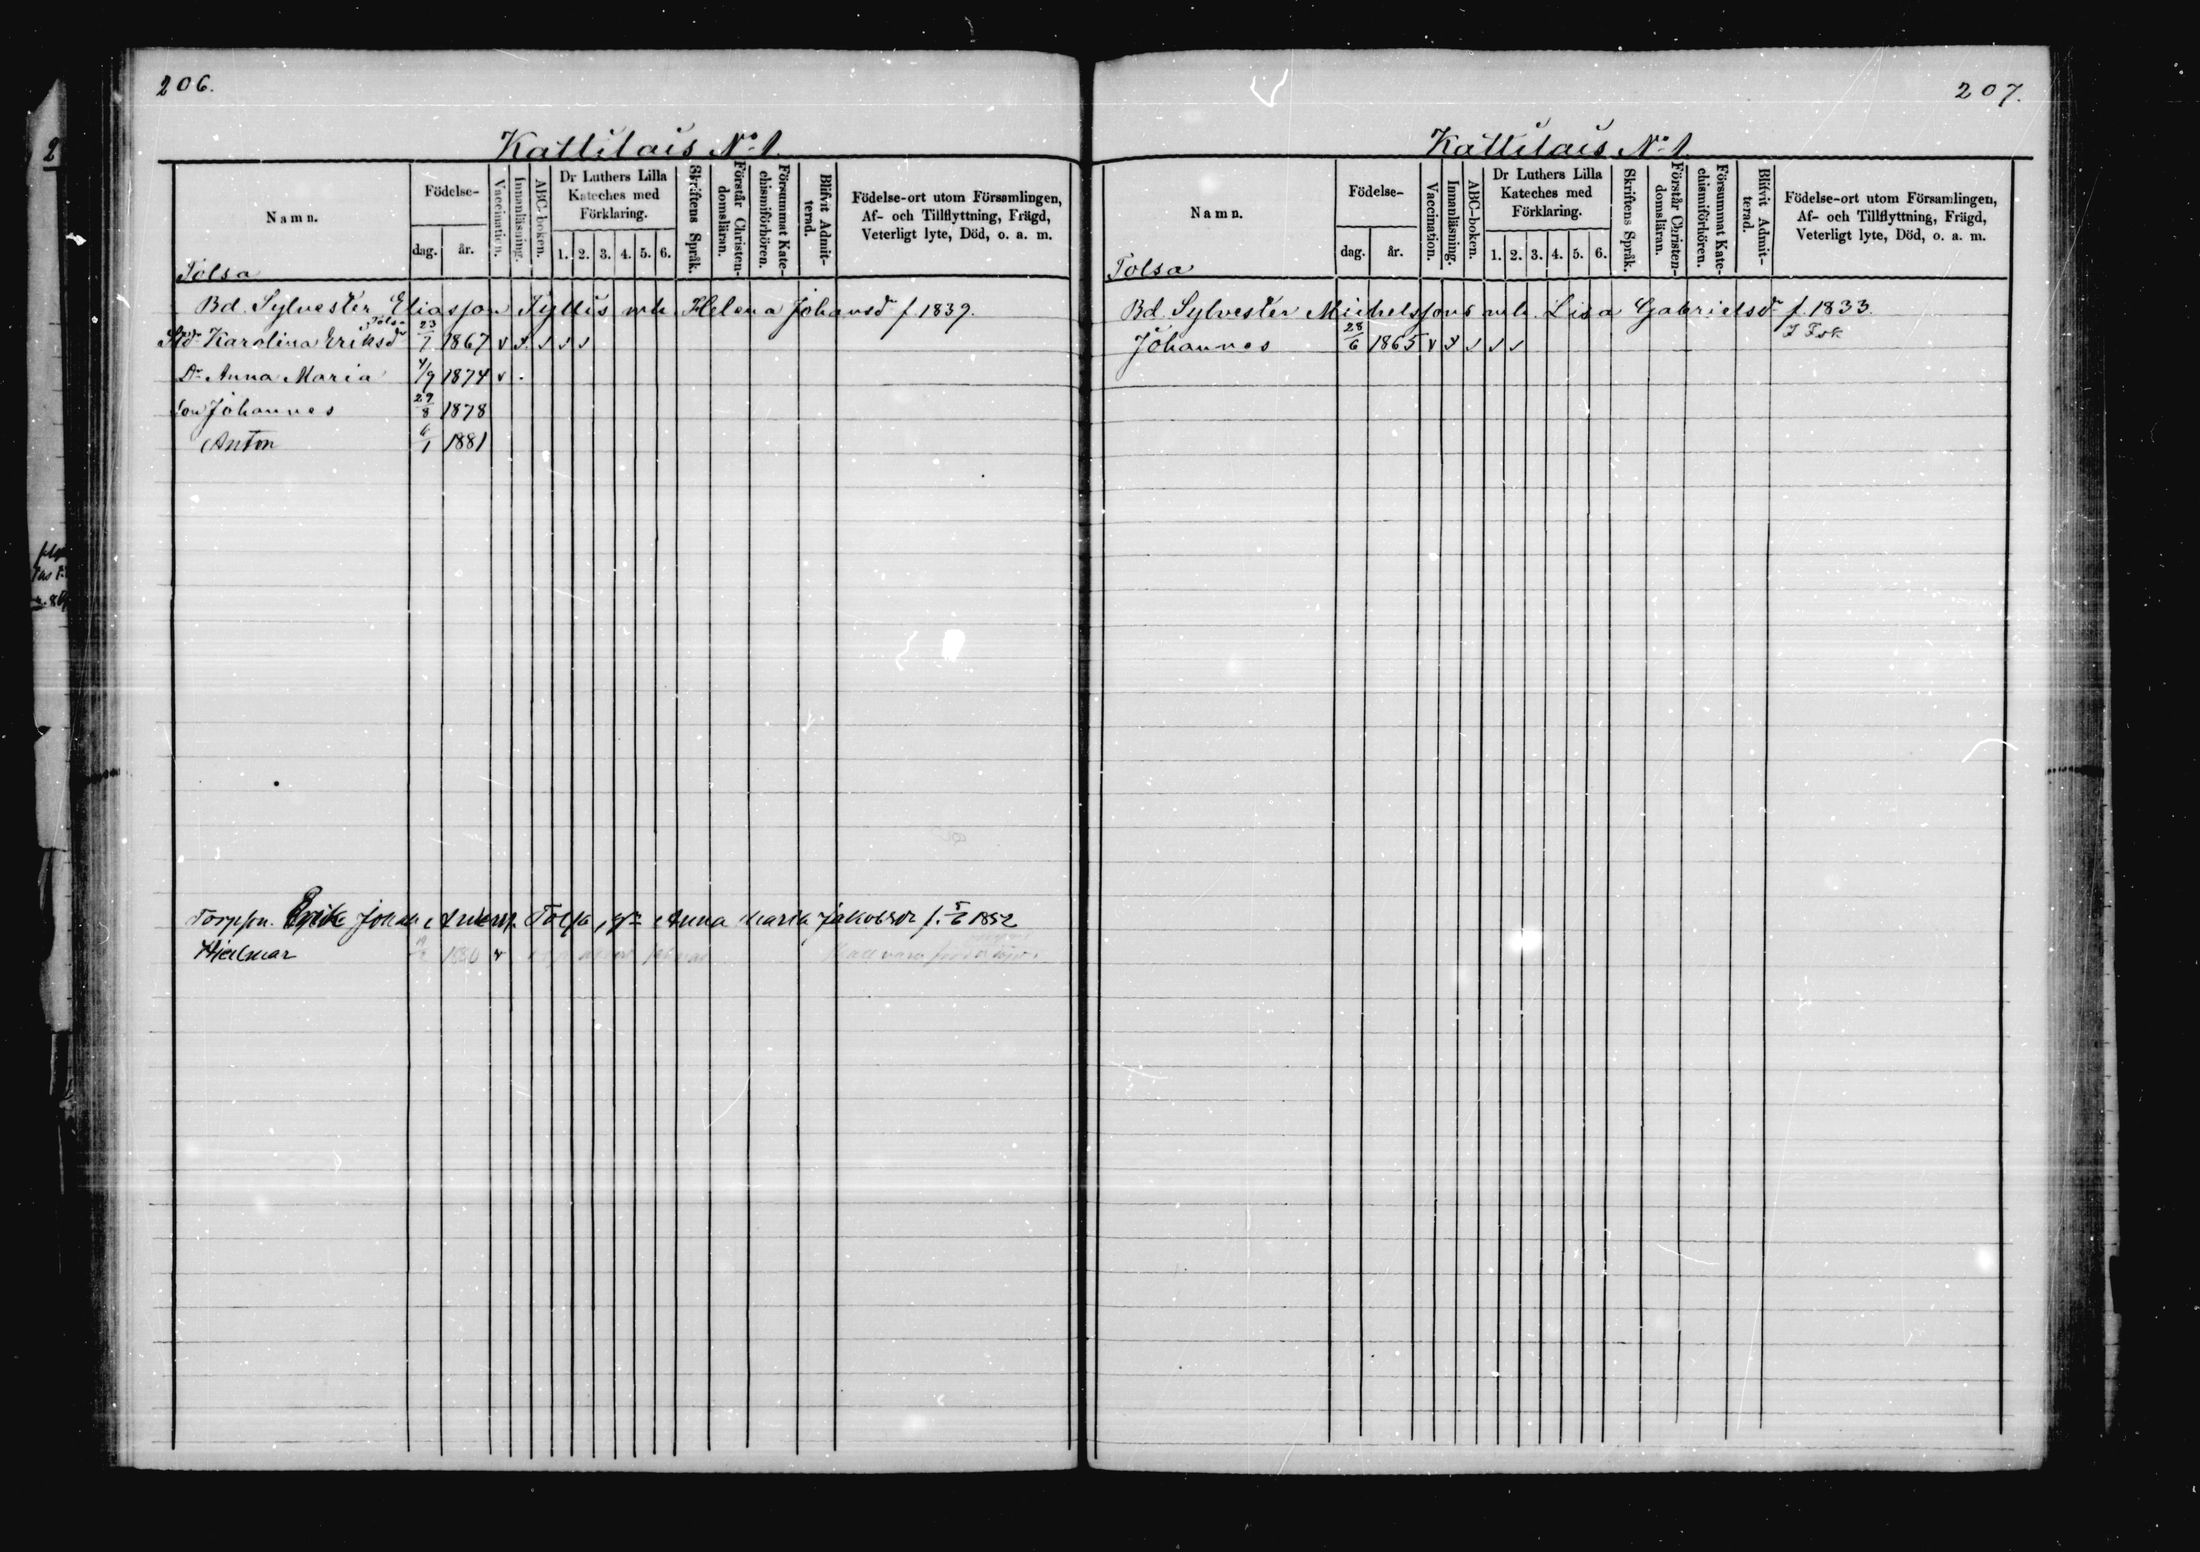 206.
Kattilais No 1.
Namn.
Födelse-
dag.
år.
Vaccination.
Innanläsning.
ABC-boken.
Dr Luthers Lilla
Kateches med
Förklaring.
1. 2. 3. 4. 5. 6.
Skriftens Språk.
Förstår Christen-
domsläran.
Försummat Kate-
chismiförhören.
Blifvit Admit-
terad.
Födelse-ort utom Församlingen,
Af- och Tillflyttning, Frägd,
Veterligt lyte, Död, o. a. m.
Tolsa
Bd. Sylvester Eliasson Tyllis enk. Helena Johansdr f 1839.
Karolina Eriksdr 23/7 1867 v
Dr Anna Maria 4/9 1874 v
Son Johannes 29/8 1878
Anton 6/1 1881
Erik Johan Tolsa, Anna Maria Jakobsdr f. 5/6 1852
Hjalmar 1880 v
207.
Kattilais No 1
Namn.
Födelse-
dag.
år.
Vaccination.
Innanläsning.
ABC-boken.
Dr Luthers Lilla
Kateches med
Förklaring.
1. 2. 3. 4. 5. 6.
Skriftens Språk.
Förstår Christen-
domsläran.
Försummat Kate-
chismiförhören.
Blifvit Admit-
terad.
Födelse-ort utom Församlingen,
Af- och Tillflyttning, Frägd,
Veterligt lyte, Död, o. a. m.
Tolsa
Bd. Sylvester Michelssons enk. Lisa Gabrielsdr f. 1833.
Johannes 28/6 1865 v